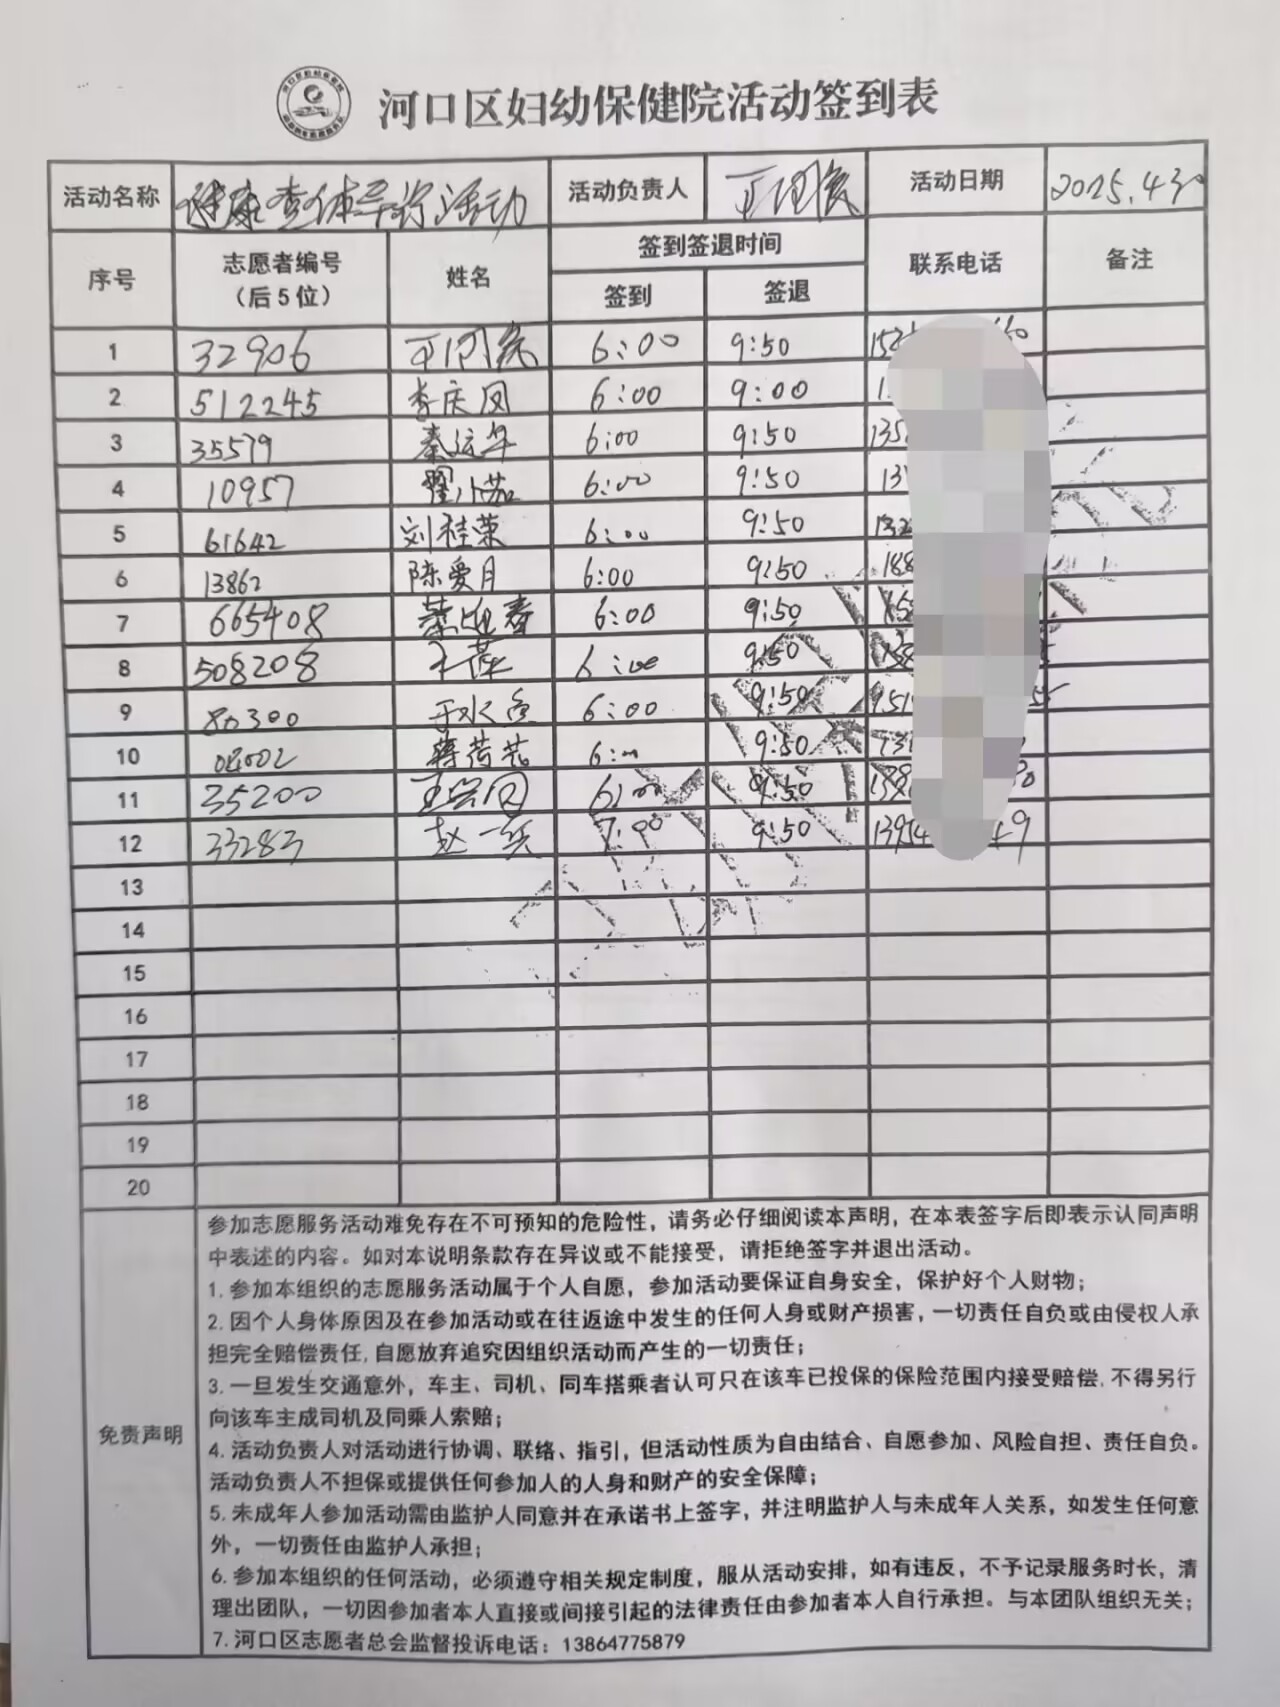 河口区妇幼保健院活动签到表
活动名称 健康查体导诊活动 活动负责人 活动日期 2025.4.30
序号 志愿者编号（后5位） 姓名 签到签退时间 联系电话 备注
签到 签退
1 32906 6:00 9:50
2 512245 李庆凤 6:00 9:00
3 35579 秦运华 6:00 9:50
4 10957 翟小茹 6:00 9:50
5 61642 刘桂荣 6:00 9:50
6 13862 陈爱月 6:00 9:50
7 665408 6:00 9:50
8 508208 6:00 9:50
9 80300 6:00 9:50
10 9:50
11 35200 6:00 9:50
12 33283 7:00 9:50
13
14
15
16
17
18
19
20
免责声明
参加志愿服务活动难免存在不可预知的危险性，请务必仔细阅读本声明，在本表签字后即表示认同声明
中表述的内容。如对本说明条款存在异议或不能接受，请拒绝签字并退出活动。
1. 参加本组织的志愿服务活动属于个人自愿，参加活动要保证自身安全，保护好个人财物；
2. 因个人身体原因及在参加活动或在往返途中发生的任何人身或财产损害，一切责任自负或由侵权人承
担完全赔偿责任, 自愿放弃追究因组织活动而产生的一切责任；
3. 一旦发生交通意外，车主、司机、同车搭乘者认可只在该车已投保的保险范围内接受赔偿, 不得另行
向该车主成司机及同乘人索赔；
4. 活动负责人对活动进行协调、联络、指引，但活动性质为自由结合、自愿参加、风险自担、责任自负。
活动负责人不担保或提供任何参加人的人身和财产的安全保障；
5. 未成年人参加活动需由监护人同意并在承诺书上签字，并注明监护人与未成年人关系，如发生任何意
外，一切责任由监护人承担；
6. 参加本组织的任何活动，必须遵守相关规定制度，服从活动安排，如有违反，不予记录服务时长，清
理出团队，一切因参加者本人直接或间接引起的法律责任由参加者本人自行承担。与本团队组织无关；
7. 河口区志愿者总会监督投诉电话：13864775879